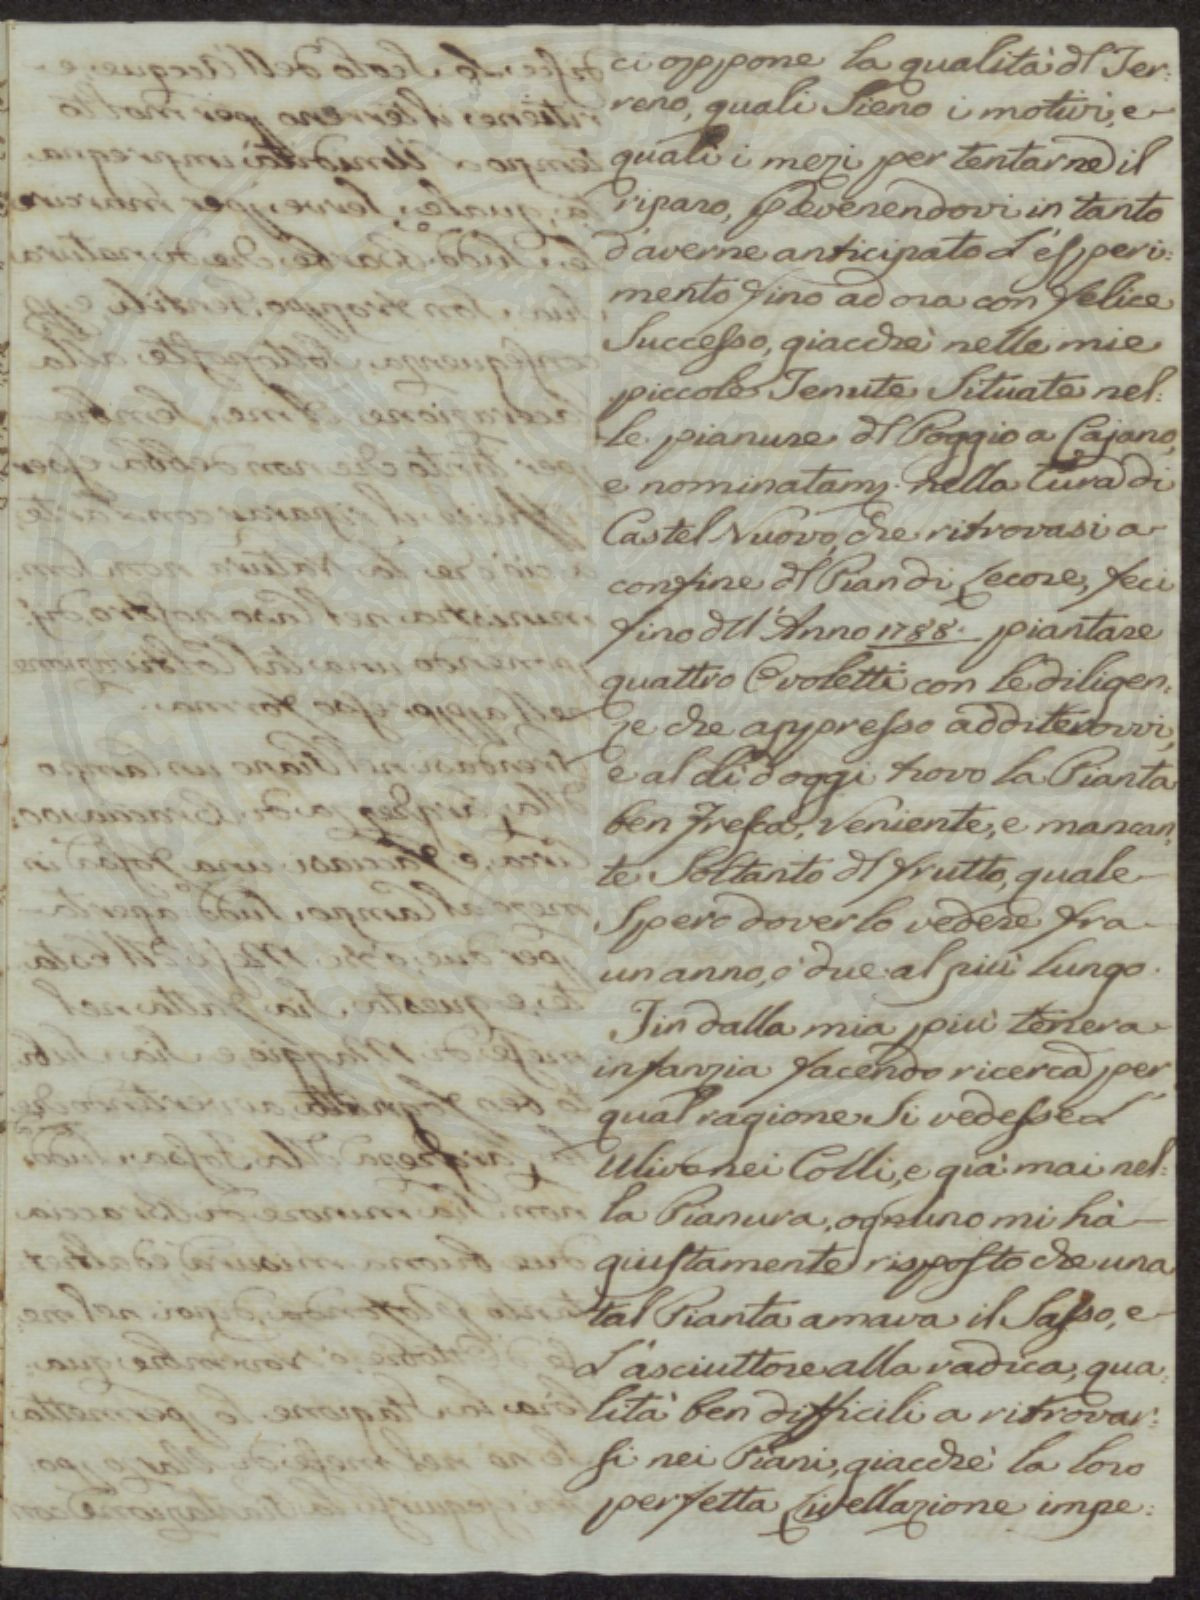 ci oppone la qualità dl Ter:
reno, quali Sieno i motivi, e
quali i mezi per tentarne il
riparo, prevenendovi in tanto
d'averne anticipato l'esperi:
mento fino ad ora con felice
Successo, giacchè nelle mie
piccole Tenute Situate nel:
le pianure dl Poggio a Cajano,
e nominatam. nella Cura di
Castel Nuovo, che ritrovasi a
confine dl Pian di Lecore, feci
fino dll'Anno 1788. piantare
quattro Ovoletti con le diligen:
ze che appresso additerovvi,
e al dì d'oggi trovo la Pianta
ben fresca, Veniente, e mancan:
te Soltanto dl frutto, quale
Spero doverlo vedere fra
un anno, ò due al più lungo.
Fin dalla mia più tenera
infanzia facendo ricerca per
qual ragione Si vedesse l'
Ulivo nei Colli, e già mai nel:
la Pianura, ognuno mi hà
giustamente risposto che una
tal Pianta amava il Sasso, e
l'asciuttore alla radica, qua:
lità ben difficili a ritrovar:
si nei Piani, giacchè la loro
perfetta Livellazione impe: